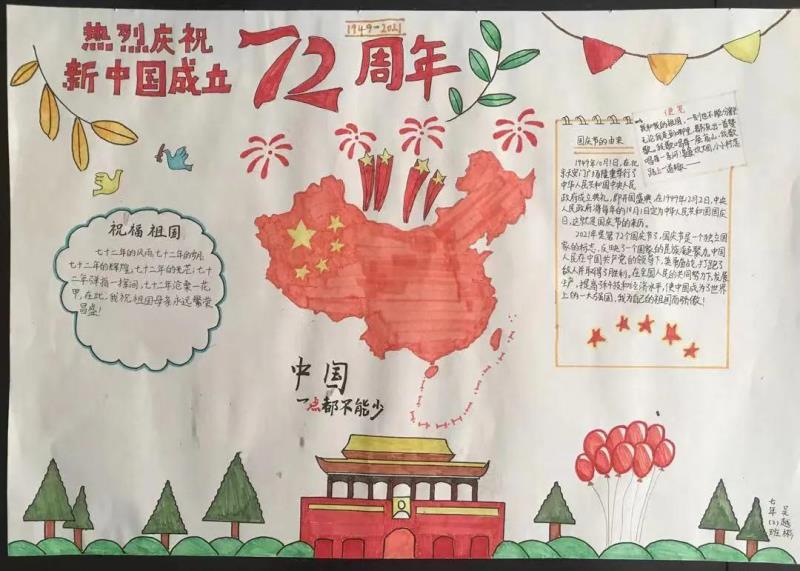 热烈庆祝
新中国成立
72周年
1949-2021
祝福祖国
七十二年的风雨，七十二年的
七十二年的辉煌，七十二年的光芒，七十
二年弹指一挥间，七十二年沧桑一花
甲，在此，我祝祖国母亲永远繁荣
昌盛！
国庆节的由来
1949年10月1日，在北
京天安门广场隆重举行了
中华人民共和国中央人民
政府成立典礼，即开国盛典，在1949年12月2日，中央
人民政府将每年的10月1日定为中华人民共和国国庆
日，这就是国庆节的来历。
2021年是第72个国庆节了，国庆节是一个独立国
家的标志，反映了一个国家的民族凝聚力，中国
人民在中国共产党的领导下，英勇奋战，打跑了
敌人并取得了胜利，在全国人民的共同努力下，发展
生产，提高科技和经济水平，使中国成为了世界
上的一大强国，我为自己的祖国而骄傲！
我和我的祖国，一刻也不能分割
无论我走到哪里，都流出一首赞
歌，我歌唱每一座高山，我歌
唱每一条河！袅袅炊烟，小小村落
路上一道辙
中国
一点都不能少
七年(2)班
吴越彬